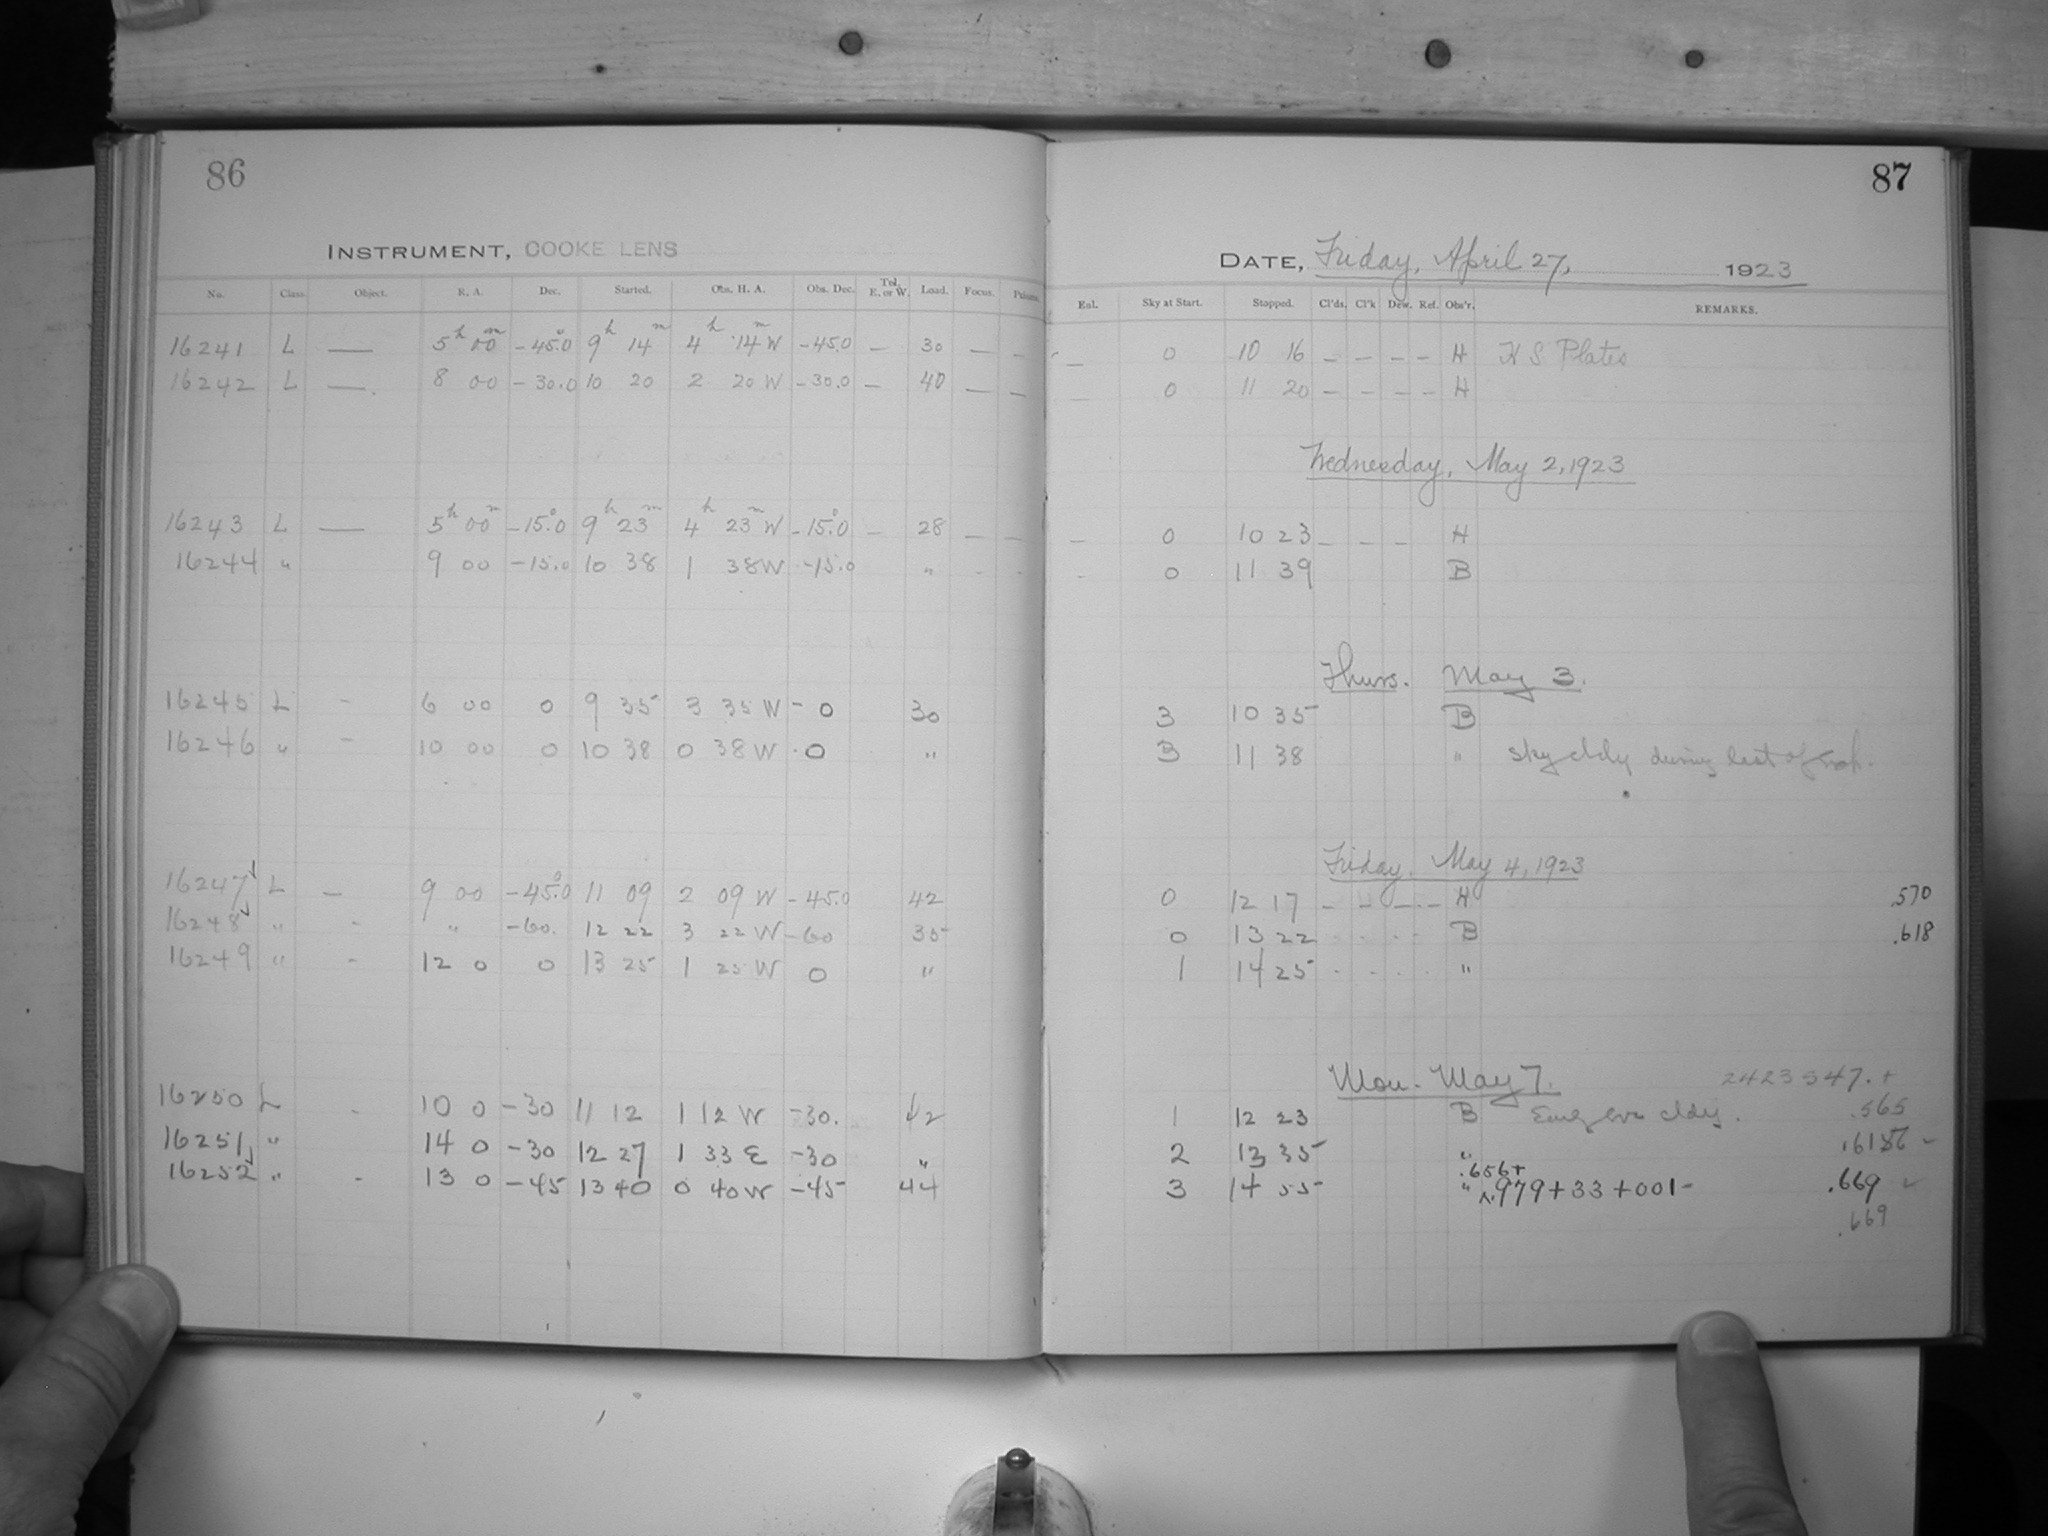 86
INSTRUMENT, COOKE LENS
No. Class. Object. R. A. Dec. Started. Obs. H. A. Obs. Dec. Tel. E. or W. Load. Focus.
16241 L — 5h 00m -45°.0 9h 14m 4h 14m W -45.0 — 30 — —
16242 L — 8 00 -30.0 10 20 2 20 W -30.0 — 40 — —
16243 L — 5h 00m -15°.0 9h 23m 4h 23m W -15°.0 — 28 — —
16244 " 9 00 -15.0 10 38 1 38 W -15.0 " - -
16245 L - 6 00 0 9 35 3 35 W - 0 30
16246 " - 10 00 0 10 38 0 38 W 0 "
16247 L — 9 00 -45°.0 11 09 2 09 W -45.0 42
16248 " - " -60. 12 22 3 22 W -60 35
16249 " - 12 0 0 13 25 1 25 W 0 "
16250 L - 10 0 -30 11 12 1 12 W -30. 42
16251 " 14 0 -30 12 27 1 33 E -30 "
16252 " - 13 0 -45 13 40 0 40 W -45 44
87
DATE, Friday, April 27, 1923
Enl. Sky at Start. Stopped. Cl'ds. Cl'k Dew. Ref. Obs'r. REMARKS.
— 0 10 16 — — — — H X S Plates
— 0 11 20 — — — — H
Wednesday, May 2, 1923
— 0 10 23 — — — H
- 0 11 39 B
Thurs. May 3.
3 10 35 B
3 11 38 " Sky cldy during last of
Friday. May 4, 1923
0 12 17 — — — — H .570
0 13 22 - - - - B .618
1 14 25 - - - - "
Mon. May 7. 2423547.+
1 12 23 B cldy. .565
2 13 35 "
.656+
3 14 55 " .979+33+001- .669
.669